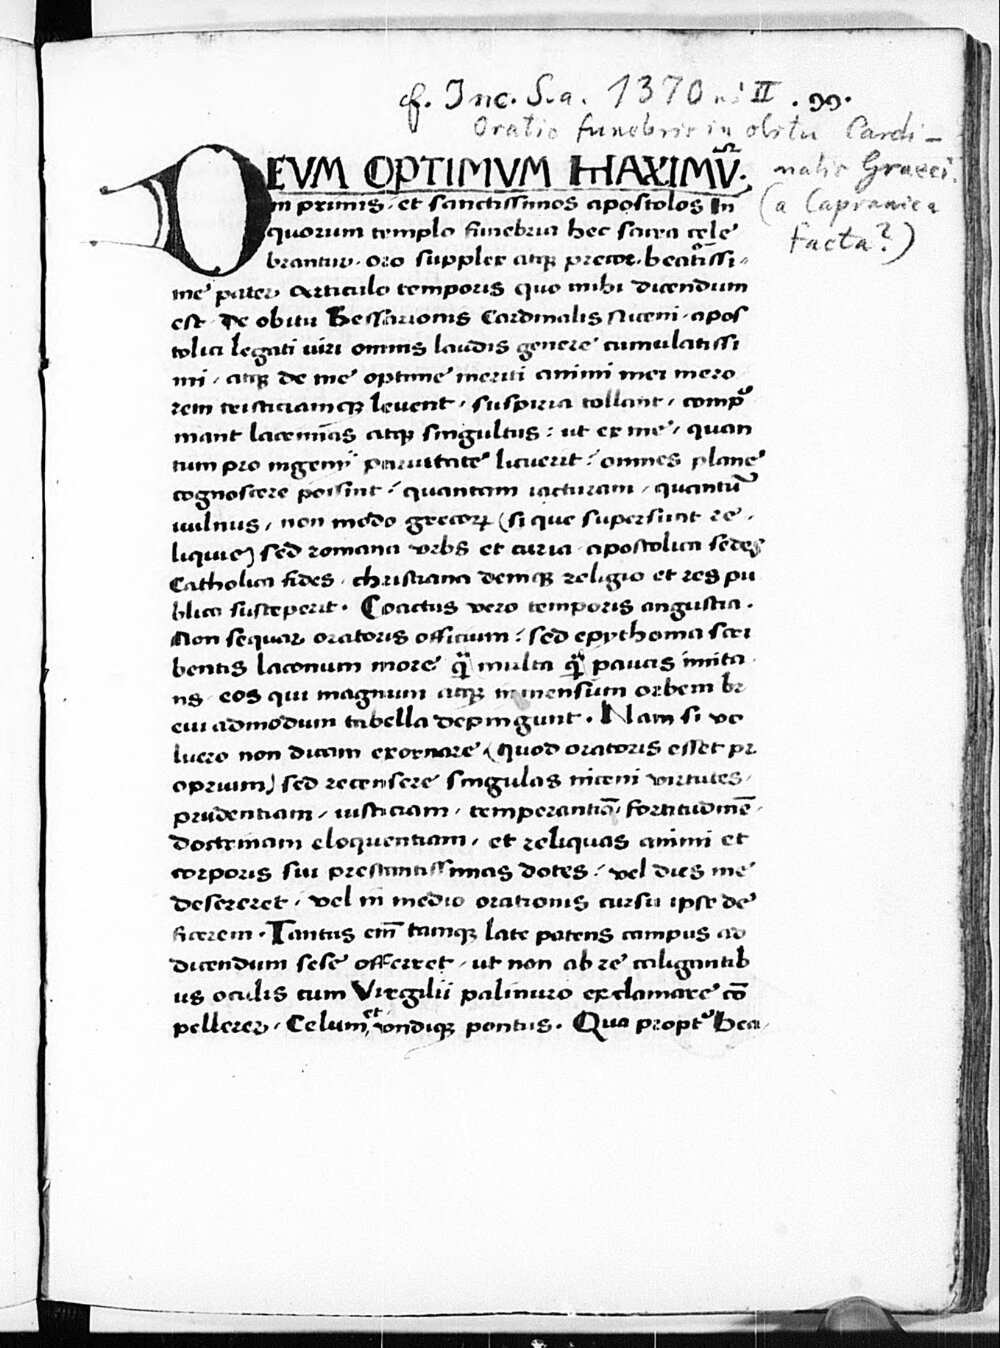 cf. Inc. S.a. 1370 n° II . 99.
Oratio funebris in obitu Cardi-
nalis Graeci.
(a Capranica
facta?)
DEVM OPTIMVM MAXIMV̄.
in primis et sanctissimos apostolos In
quorum templo funebria hec sacra cele
brantur. oro supplex atqꝫ precor. beatissi-
me pater articulo temporis quo mihi dicendum
est. De obitu Bessarionis Cardinalis Niceni. apos
tolici legati uiri omnis laudis genere cumulatissi
mi, atqꝫ de me optime meriti animi mei mero
rem tristiciamqꝫ leuent, suspiria tollant, compͥ
mant lacrimas atqꝫ singultus: ut ex me, quan
tum pro ingenij paruitate licuerit: omnes plane
cognoscere possint: quantam iacturam, quantū
uulnus, non modo grecoꝝ (si que supersunt re,
liquie) sed romana vrbs et curia apostolica sedes
Catholica fides, christiana deniqꝫ religio et res pu
blica susceperit. Coactus vero temporis angustia.
Non sequar oratoris officium: sed epythoma scri
bentis laconum more qͣ multa qͣ paucis imita
ns eos qui magnum atqꝫ inmensum orbem br
eui admodum tabella depingunt. Nam si vo
luero non dicam exornare (quod oratoris esset pr
oprium) sed recensere singulas niceni virtutes,
prudentiam, iusticiam, temperantiā, fortitudinē,
doctrinam eloquentiam, et reliquas animi et
corporis sui prestantissimas dotes: vel dies me
desereret, vel in medio orationis cursu ipse de
ficerem. Tantus em̄ tamqꝫ late patens campus ad
dicendum sese offerret, ut non ab re caligantib
us oculis cum Virgilii palinuro exclamare cō
pellerer. Celum et vndiqꝫ pontus. Qua propt᾽ Bea,